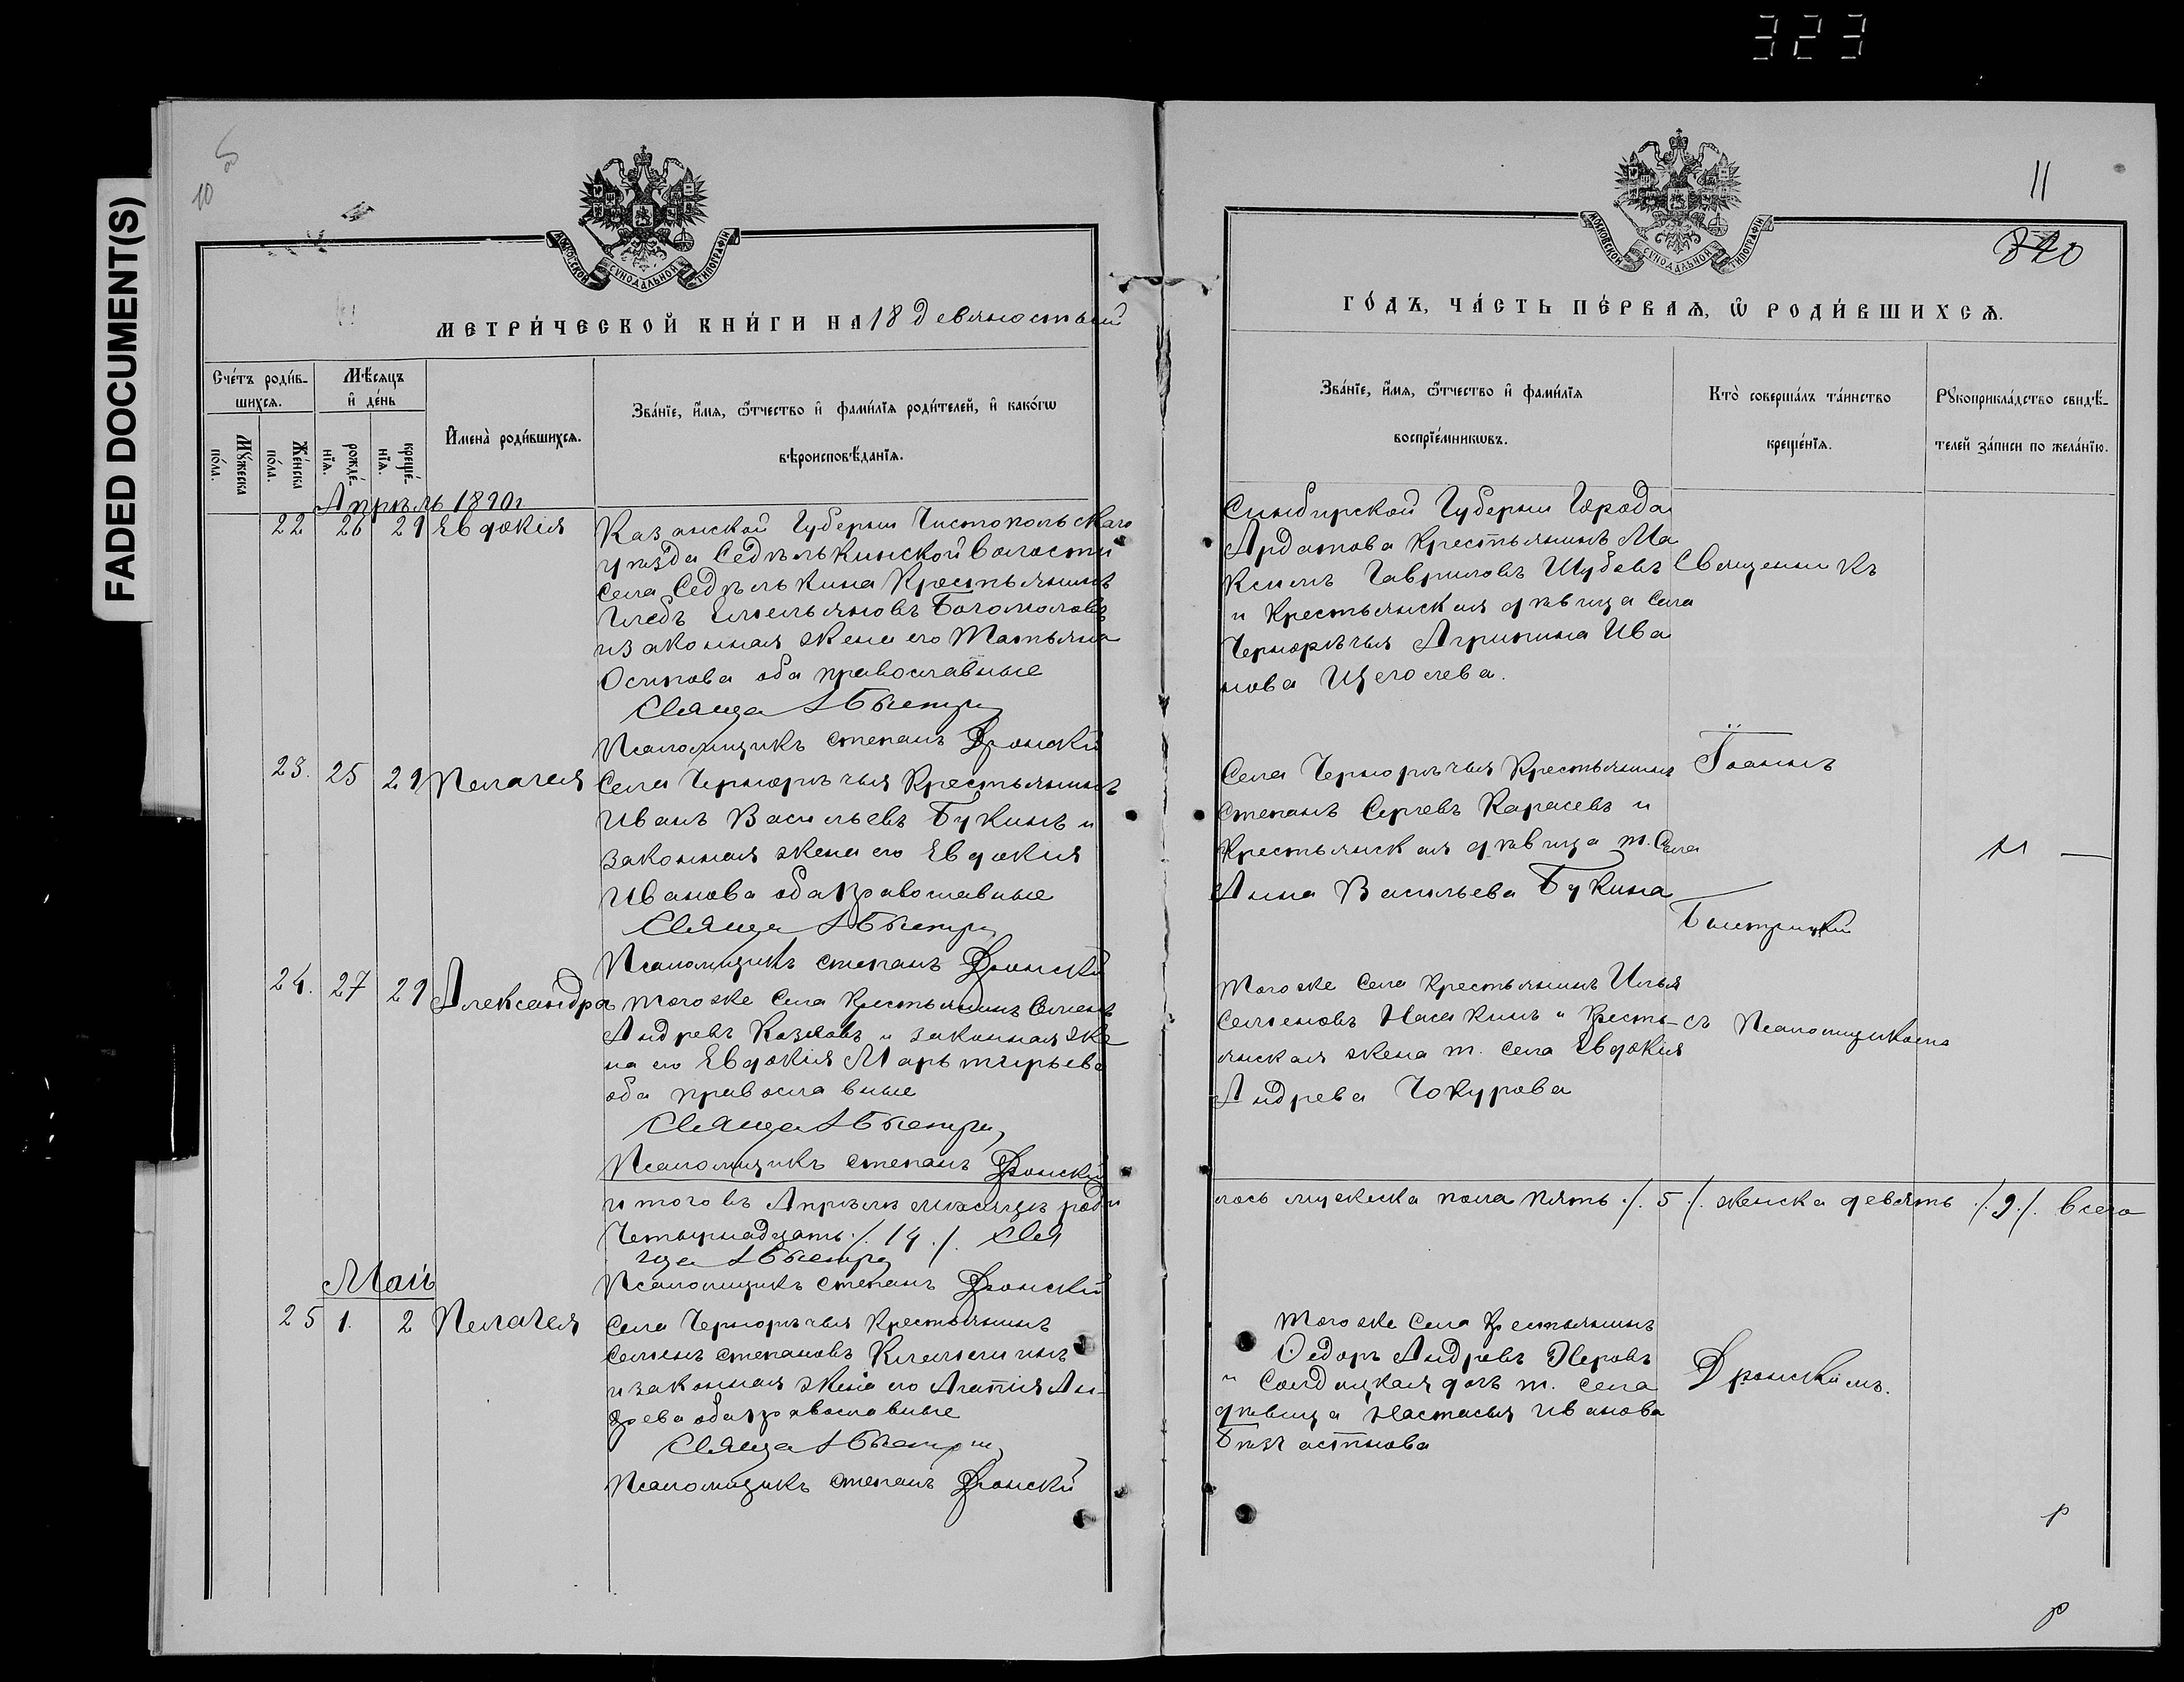 323
FADED DOCUMENT(S)
10
МОСКОВСКОЙ СѴНОДАЛЬНОЙ ТИПОГРАФІИ
МЕТРИ́ЧЕСКОЙ КНИ́ГИ НА 18 девяностый
Сче́тъ роди́в-
шихся.
Мѣ́сяцъ
и҆ де́нь
Му́жеска
по́ла.
Же́нска
по́ла.
рожде́-
нїѧ.
креще́-
нїѧ.
И҆мена̀ роди́вшихсѧ.
Зва́нїе, и҆́мѧ, ѻ҆́тчество и҆ фами́лїѧ роди́телей, и҆ како́гѡ
вѣроисповѣ́данїѧ.
Апрѣль 1890г
22 26 29 Евдокія
Казанской Губерніи Чистопольскаго
уѣзда Седѣлькинской волости
села Седѣлькина Крестьянинъ
Глебъ Емельяновъ Богомоловъ
и законная жена его Татьяна
Осипова оба православные
Псаломщикъ Степанъ Дронскій
23. 25 29 Пелагея
Села Чернорѣчья Крестьянинъ
Иванъ Васильевъ Букинъ и
законная жена его Евдокия
Иванова оба православные
Псаломщикъ Степанъ Дронскій
24. 27 29 Александра
Того же Села Крестьянинъ Семенъ
Андревъ Козловъ и законная же
на его Евдокия Мартирьева
оба православные
Псаломщикъ Степанъ Дронскій
итого въ Апрѣлѣ мѣсяцѣ роди
Четырнадцать ./. 14 ./.
Псаломщикъ Степанъ Дронскій
Май
25 1. 2 Пелагея
Села Чернорѣчья Крестьянинъ
Семенъ Степановъ
и законная жена его Агапия Ан-
древа оба православные
Псаломщикъ Степанъ Дронскій
11
320
МОСКОВСКОЙ СѴНОДАЛЬНОЙ ТИПОГРАФІИ
ГО́ДЪ, ЧА́СТЬ ПЕ́РВАѦ, Ѡ҆ РОДИ́ВШИХСѦ.
Зва́нїе, и҆́мѧ, ѻ҆́тчество и҆ фами́лїѧ
воспрїе́мникѡвъ.
Кто̀ соверша́лъ та́инство
креще́нїѧ.
Рꙋкоприкла́дство свидѣ́-
телей за́писи по жела́нїю.
Симбирской Губерніи Города
Ардатова Крестьянинъ Ма
ксимъ Гавриловъ Шубовъ
и Крестьянская дѣвица села
Чернорѣчья Агрипина Ива
нова Щеголева.
Священникъ
Села Чернорѣчья Крестьянинъ
Степанъ Сергевъ Карасевъ и
Крестьянская дѣвица т. Села
Анна Васильева Букина
Іоаннъ
Быстрицкій
Того же Села Крестьянинъ Илья
Семеновъ Насакинъ и Кресть-
янская жена т. Села Евдокия
Андрева Чокурова
съ Псаломщикомъ
лось мужеска пола пять ./. 5 ./. женска девять ./. 9 ./. всего
Того же Села Крестьянинъ
Ѳедоръ Андревъ
и Солдацкая дочь т. села
дѣвица Настасья Иванова
Дронскимъ.